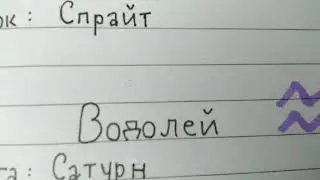 ок: Спрайт
Водолей
та: Сатурн